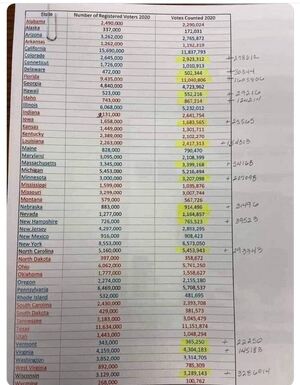 State Number of Registered Voters 2020 Votes Counted 2020
Alabama 2,490,000 2,290,024
Alaska 337,000 172,031
Arizona 3,262,000 2,765,872
Arkansas 1,262,000 1,192,319
California 15,690,000 11,837,793
Colorado 2,645,000 2,923,312
Connecticut 1,726,000 1,010,913
Delaware 472,000 502,344
Florida 9,435,000 11,040,806
Georgia 4,840,000 4,723,962
Hawaii 523,000 552,216
Idaho 743,000 867,214
Illinois 6,068,000 5,232,012
Indiana 2,641,754
Iowa 1,658,000 1,683,565
Kansas 1,449,000 1,301,711
Kentucky 2,389,000 2,102,270
Louisiana 2,263,000 2,417,313
Maine 828,000 790,470
Maryland 3,095,000 2,108,399
Massachusetts 3,345,000 3,399,168
Michigan 5,453,000 5,216,494
Minnesota 3,000,000 3,207,098
Mississippi 1,599,000 1,035,876
Missouri 3,299,000 3,007,744
Montana 579,000 567,726
Nebraska 883,000 914,496
Nevada 1,277,000
New Hampshire 726,000 765,523
New Jersey 4,297,000 2,853,295
New Mexico 916,000 908,423
New York 8,573,000 6,553,050
North Carolina 5,160,000 5,453,943 + 293943
North Dakota 397,000 358,672
Ohio 6,062,000 5,761,250
Oklahoma 1,777,000 1,558,627
Oregon 2,274,000 2,155,180
Pennsylvania 6,469,000 5,708,537
Rhode Island 532,000 481,695
South Carolina 2,430,000 2,393,708
South Dakota 429,000 381,573
Tennessee 3,183,000 3,045,479
Texas 11,634,000 11,151,874
Utah 1,443,000 1,048,294
Vermont 343,000 365,250 + 22250
Virginia 4,159,000 4,304,183 + 145183
Washington 3,852,000 3,314,705
West Virginia 892,000 785,309
Wisconsin 3,129,000
Wyoming 268,000 100,762